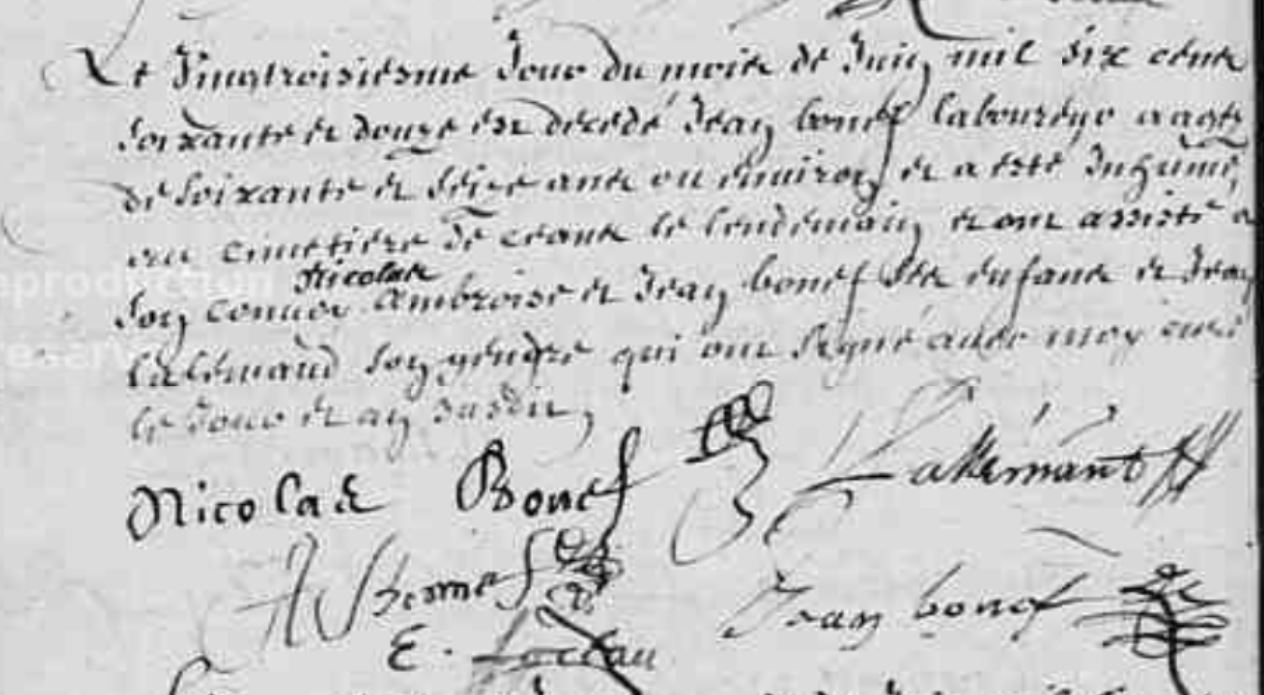 Le vingtroisiesme Jour du mois de Juin mil six cens
soixante et douze est decedé Jean bonef laboureur aagé
de soixante et seize ans ou environ et a esté Inhumé
au cimetiere de ceans le lendemain et ont assisté a
son convoy Nicolas Ambroise et Jean bonef ses enfans et Jean
lalemand son gendre qui ont signé avec moy curé
le Jour et an susdit,
Nicolas Bonef Lallemant
A Bonnef Jean bonef
E.